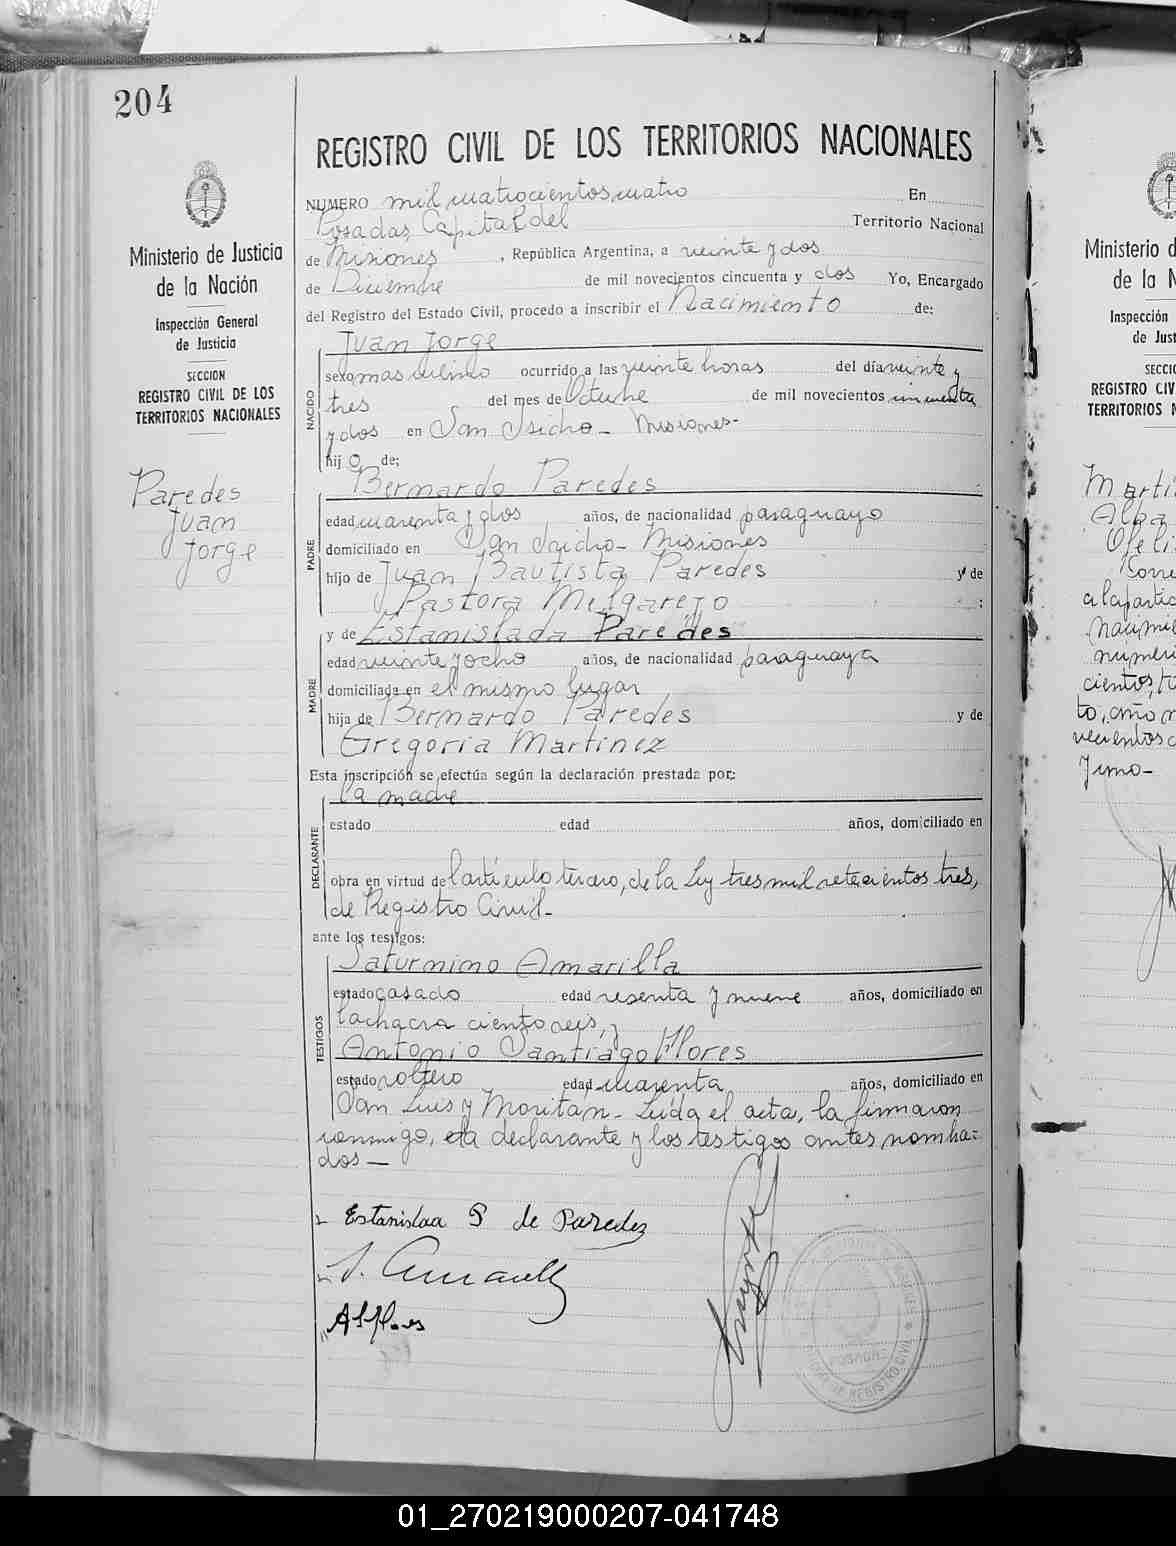 204
REGISTRO CIVIL DE LOS TERRITORIOS NACIONALES
Ministerio de Justicia
de la Nación
Inspección General
de Justicia
SECCION
REGISTRO CIVIL DE LOS
TERRITORIOS NACIONALES
Paredes
Juan
Jorge
NUMERO mil cuatrocientos cuatro En
Posadas, Capital del Territorio Nacional
de Misiones, República Argentina, a veinte y dos
de Diciembre de mil novecientos cincuenta y dos Yo, Encargado
del Registro del Estado Civil, procedo a inscribir el Nacimiento de:
NACIDO
Juan Jorge
sexo masculino ocurrido a las veinte horas del día veinte y
tres del mes de Octubre de mil novecientos cincuenta
y dos en San Isidro - Misiones-
hijo de;
PADRE
Bernardo Paredes
edad cuarenta y dos años, de nacionalidad paraguayo
domiciliado en San Isidro - Misiones
hijo de Juan Bautista Paredes y de
Pastora Melgarejo :
MADRE
y de Estanislada Paredes
edad veinte y ocho años, de nacionalidad paraguaya
domiciliada en el mismo lugar
hija de Bernardo Paredes y de
Gregoria Martinez
Esta inscripción se efectúa según la declaración prestada por:
DECLARANTE
la madre
estado edad años, domiciliado en
obra en virtud del artículo tercero, de la Ley tres mil setecientos tres,
de Registro Civil-
ante los testigos:
TESTIGOS
Saturnino Amarilla
estado casado edad sesenta y nueve años, domiciliado en
la chacra ciento seis, y
Antonio Santiago Flores
estado soltero edad cuarenta años, domiciliado en
San Luis y Moritán - Leída el acta, la firmaron
conmigo, la declarante y los testigos antes nomba=
dos —
Estanislaa P de Paredes
S. Amarilla
AS flores
POSADAS
REGISTRO CIVIL
Ministerio d
de la N
Inspección
de Just
SECCIO
REGISTRO CIV
TERRITORIOS N
Marti
Alba
Ofeli
Corre
a la partid
nacimie
numero
cientos,
to, año m
vecientos c
y uno-
01_270219000207-041748